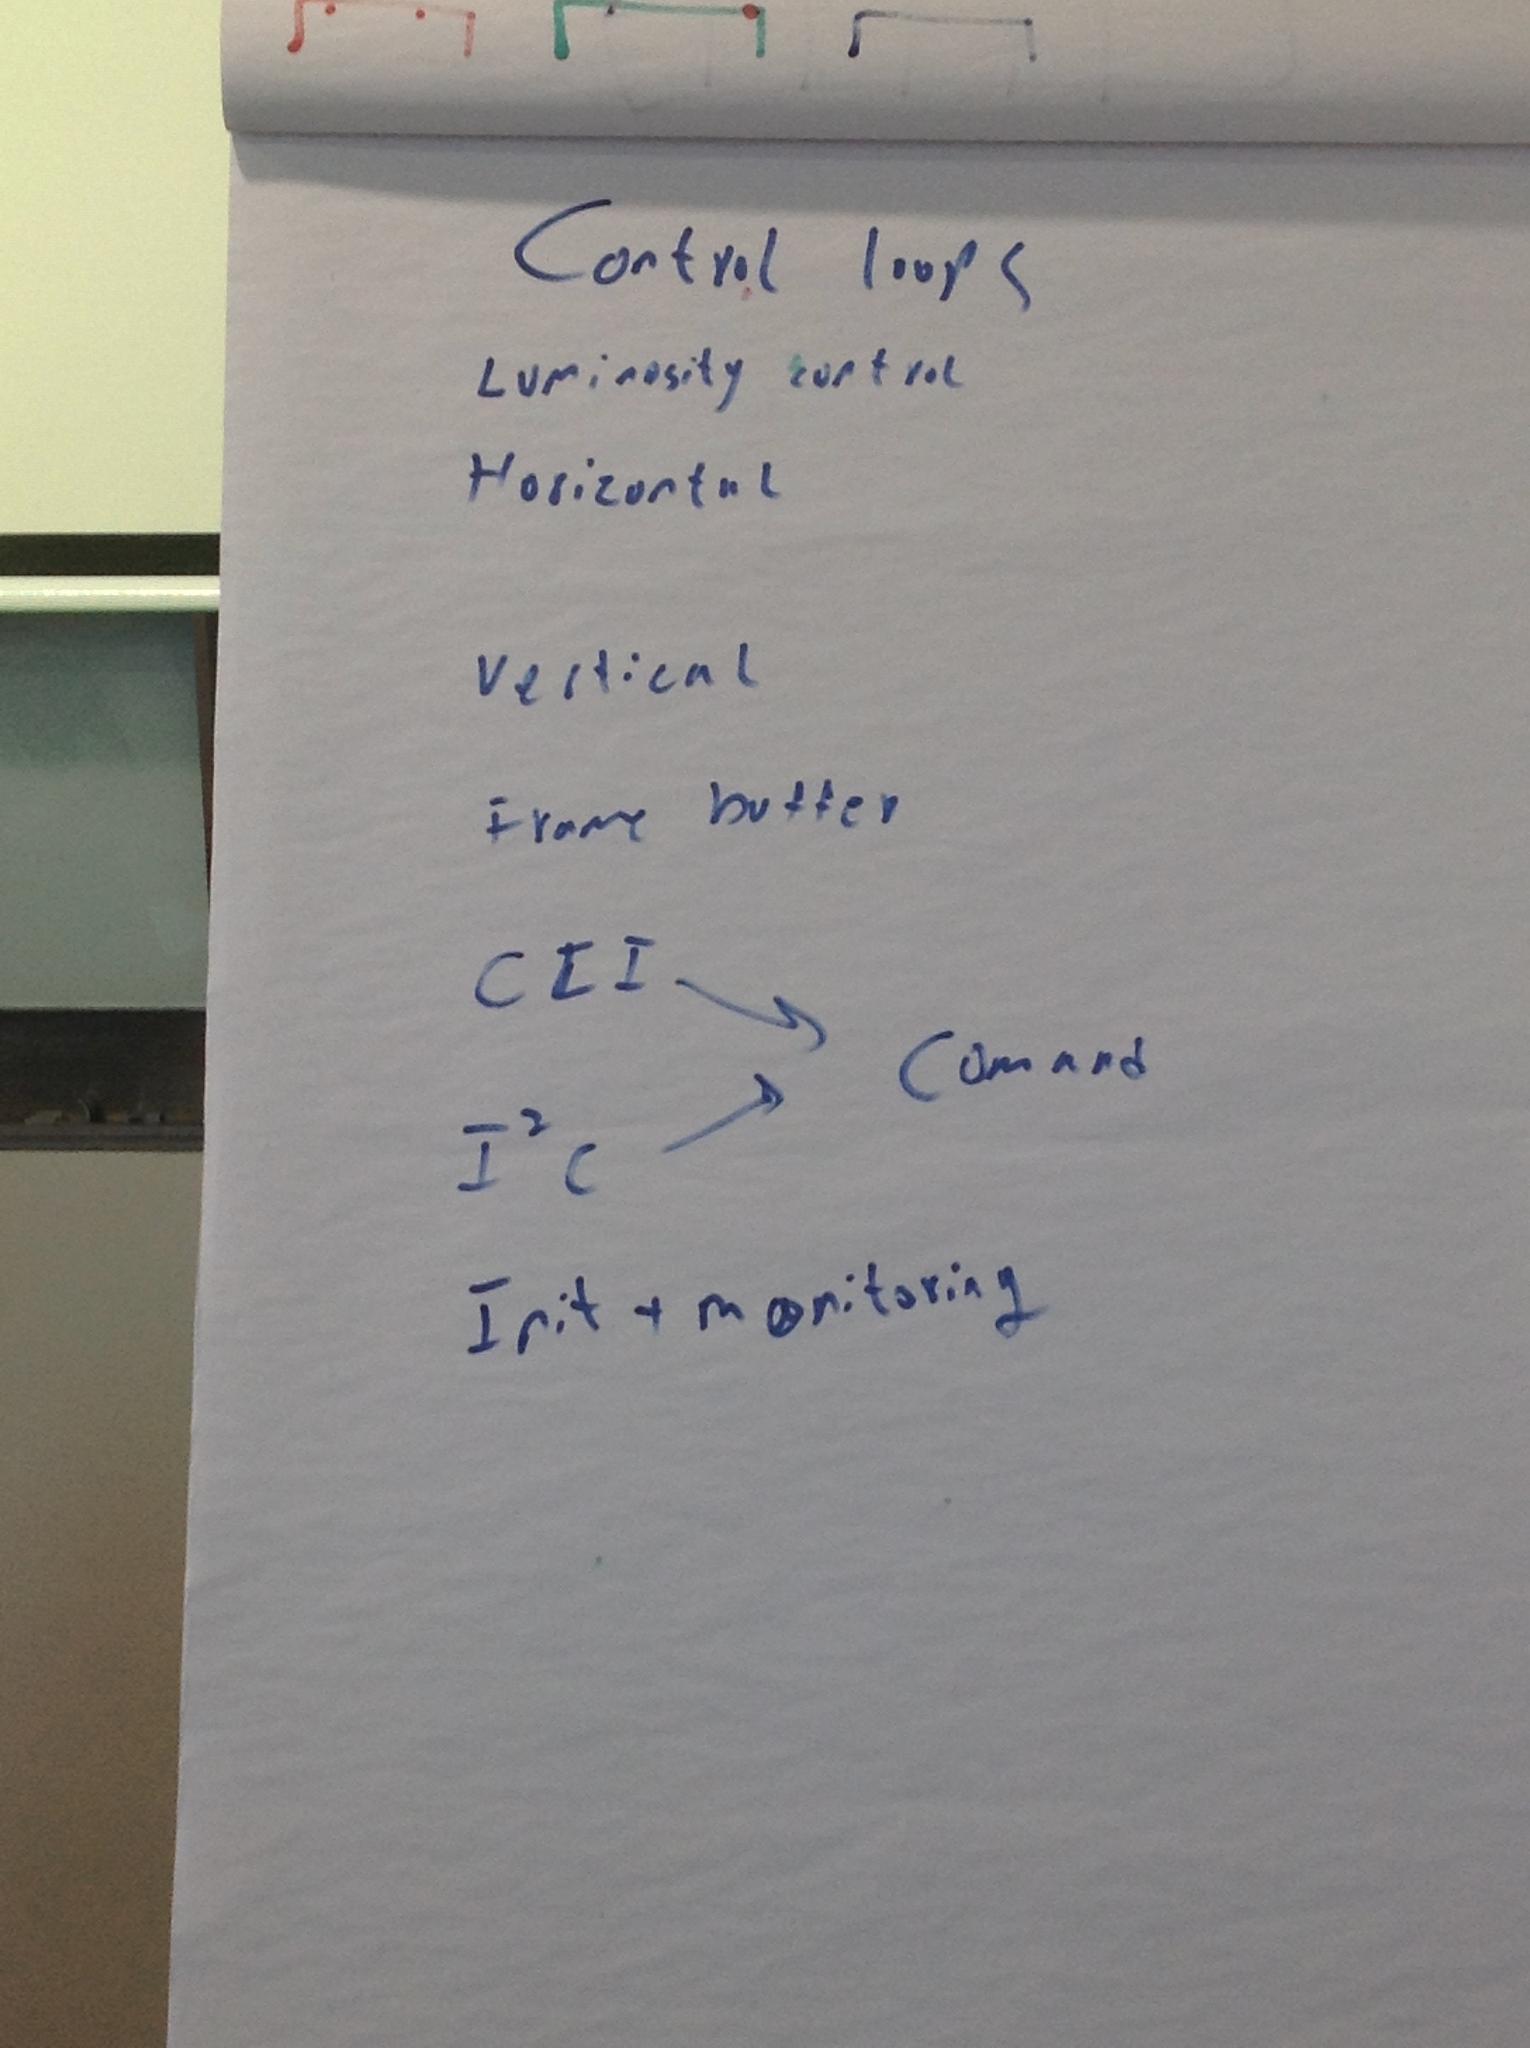 Control loops
Luminosity control
Horizontal
Vertical
Frame buffer
CII
Command
I²C
Init + monitoring